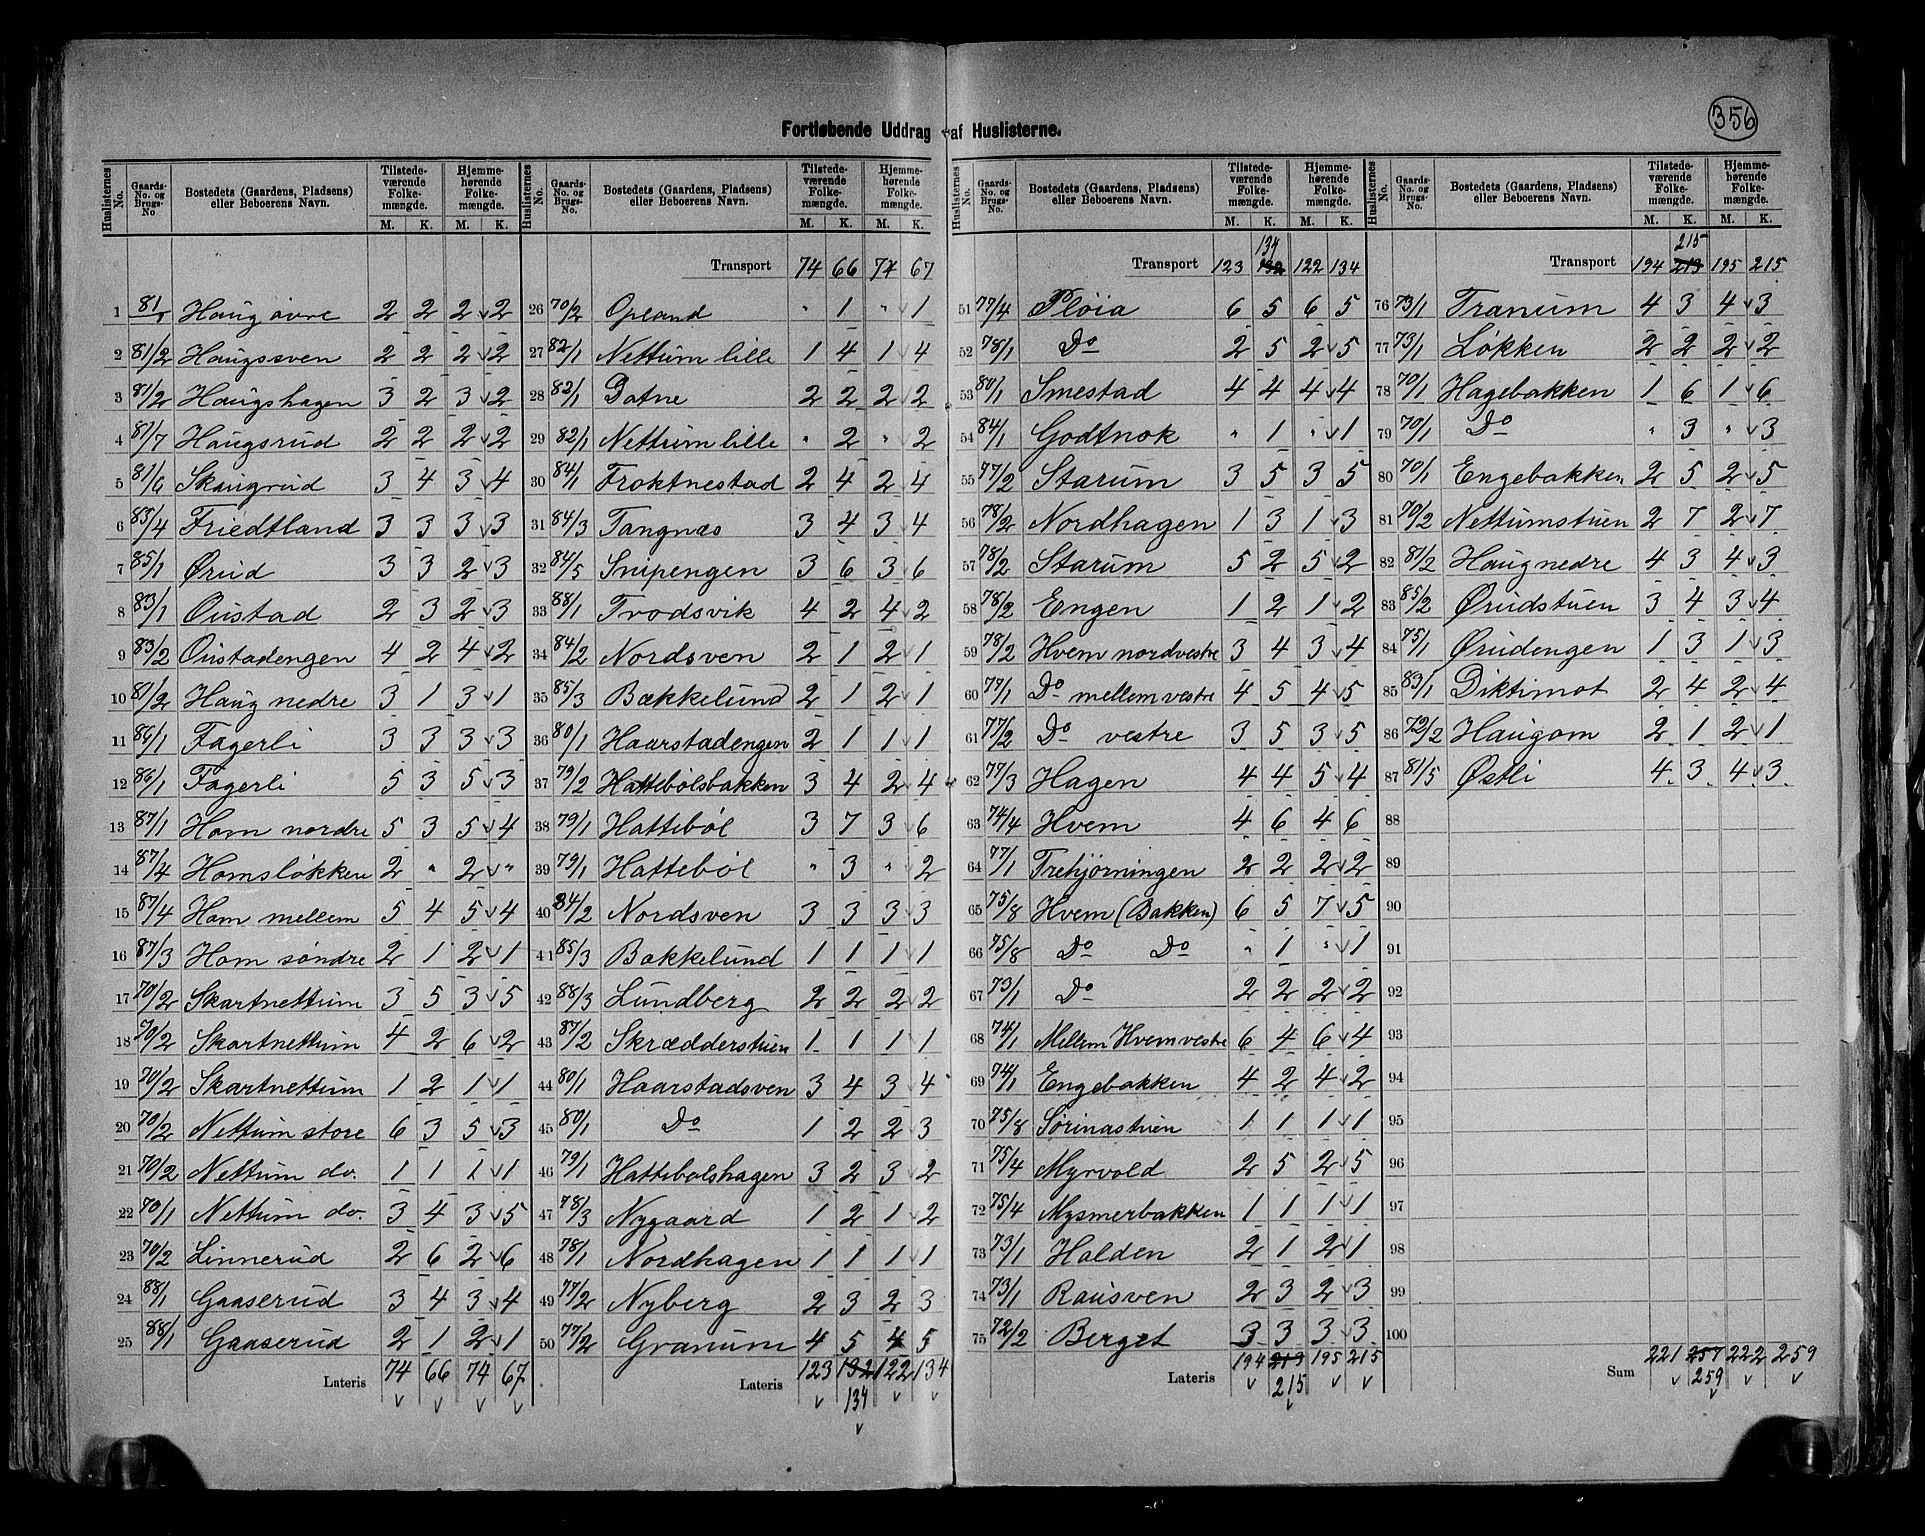 356
Fortløbende Uddrag af Huslisterne.
Huslisternes No. Gaards- No. og Brugs- No Bostedets (Gaardens, Pladsens) eller Beboerens Navn. Tilstedeværende Folkemængde. M. K. Hjemmehørende Folkemængde. M. K.
1 81/1 Haug øvre 2 2 2 2
2 81/2 Haugssven 2 2 2 2
3 81/2 Haugshagen 3 2 3 2
4 81/7 Haugsrud 2 2 2 2
5 81/6 Skaugrud 3 4 3 4
6 83/4 Friedtland 3 3 3 3
7 85/1 Ørud 3 3 2 3
8 83/1 Oustad 2 3 2 3
9 83/2 Oustadengen 4 2 4 2
10 81/2 Haug nedre 3 1 3 1
11 86/1 Fagerli 3 3 3 3
12 86/1 Fagerli 5 3 5 3
13 87/1 Hom nordre 5 3 5 4
14 87/4 Homsløkken 2 " 2 "
15 87/4 Hom mellem 5 4 5 4
16 87/3 Hom søndre 2 1 2 1
17 70/2 Skartnettum 3 5 3 5
18 70/2 Skartnettum 4 2 6 2
19 70/2 Skartnettum 1 2 1 1
20 70/2 Nettum store 6 3 5 3
21 70/2 Nettum do. 1 1 1 1
22 70/1 Nettum do. 3 4 3 5
23 70/2 Linnerud 2 6 2 6
24 88/1 Gaaserud 3 4 3 4
25 88/1 Gaaserud 2 1 2 1
Lateris 74 66 74 67
Huslisternes No. Gaards- No. og Brugs- No. Bostedets (Gaardens, Pladsens) eller Beboerens Navn. Tilstedeværende Folkemængde. M. K. Hjemmehørende Folkemængde. M. K.
Transport 74 66 74 67
26 70/2 Opland " 1 " 1
27 82/1 Nettum lille 1 4 1 4
28 82/1 Datne 2 2 2 2
29 82/1 Nettum lille " 2 " 2
30 84/1 Froktnestad 2 4 2 4
31 84/3 Tangnæs 3 4 3 4
32 84/5 Snipengen 3 6 3 6
33 88/1 Trodsvik 4 2 4 2
34 84/2 Nordsven 2 1 2 1
35 85/3 Bækkelund 2 1 2 1
36 80/1 Haarstadengen 2 1 1 1
37 79/2 Hattebølsbakken 3 4 2 4
38 79/1 Hattebøl 3 7 3 6
39 79/1 Hattebøl " 3 " 2
40 84/2 Nordsven 3 3 3 3
41 85/3 Bækkelund 1 1 1 1
42 88/3 Lundberg 2 2 2 2
43 87/2 Skrædderstuen 1 1 1 1
44 80/1 Haarstadsven 3 4 3 4
45 80/1 Do 1 2 2 3
46 79/1 Hattebølshagen 3 2 3 2
47 78/3 Nygaard 1 2 1 2
48 78/1 Nordhagen 1 1 1 1
49 77/2 Nyberg 2 3 2 3
50 77/2 Granum 4 5 4 5
Lateris 123 132 122 134
134
Huslisternes No. Gaards- No. og Brugs- No. Bostedets (Gaardens, Pladsens) eller Beboerens Navn. Tilstedeværende Folkemængde. M. K. Hjemmehørende Folkemængde. M. K.
134
Transport 123 132 122 134
51 77/4 Pløia 6 5 6 5
52 78/1 Do 2 5 2 5
53 80/1 Smestad 4 4 4 4
54 84/1 Godtnok " 1 " 1
55 77/2 Starum 3 5 3 5
56 78/2 Nordhagen 1 3 1 3
57 78/2 Starum 5 2 5 2
58 78/2 Engen 1 2 1 2
59 78/2 Hvem nordvestre 3 4 3 4
60 77/1 Do mellem vestre 4 5 4 5
61 77/2 Do vestre 3 5 3 5
62 77/3 Hagen 4 4 5 4
63 74/4 Hvem 4 6 4 6
64 77/1 Trehjørningen 2 2 2 2
65 75/8 Hvem (Bakken) 6 5 7 5
66 75/8 Do Do " 1 " 1
67 73/1 Do 2 2 2 2
68 74/1 Mellem Hvem vestre 6 4 6 4
69 74/1 Engebakken 4 2 4 2
70 75/8 Sørinastuen 1 1 1 1
71 75/4 Myrvold 2 5 2 5
72 75/4 Mysmerbakken 1 1 1 1
73 73/1 Halden 2 1 2 1
74 73/1 Rausven 2 3 2 3
75 72/2 Berget 3 3 3 3
Lateris 194 213 195 215
215
Huslisternes No. Gaards- No. og Brugs- No. Bostedets (Gaardens, Pladsens) eller Beboerens Navn. Tilstedeværende Folkemængde. M. K. Hjemmehørende Folkemængde. M. K.
215
Transport 194 213 195 215
76 73/1 Tranum 4 3 4 3
77 73/1 Løkken 2 2 2 2
78 70/1 Hagebakken 1 6 1 6
79 70/1 Do " 3 " 3
80 70/1 Engebakken 2 5 2 5
81 70/2 Nettumstuen 2 7 2 7
82 81/2 Haug nedre 4 3 4 3
83 85/2 Ørudstuen 3 4 3 4
84 75/1 Ørudengen 1 3 1 3
85 83/1 Diktimot 2 4 2 4
86 72/2 Haugom 2 1 2 1
87 81/5 Østli 4 3 4 3
88
89
90
91
92
93
94
95
96
97
98
99
100
Sum 221 257 222 259
259